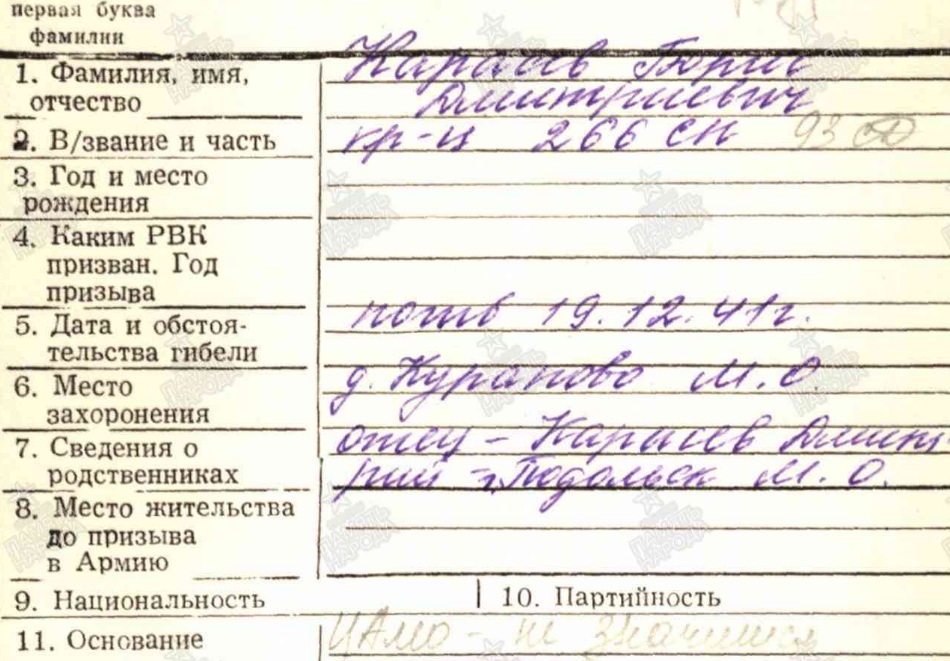 первая буква
фамилии
1. Фамилия, имя,
отчество
Карасев Борис
Дмитриевич
2. В/звание и часть
кр-ц 266 СП 93 сд
3. Год и место
рождения
4. Каким РВК
призван. Год
призыва
5. Дата и обстоя-
тельства гибели
погиб 19.12.41г.
6. Место
захоронения
д. Курапово М.О.
7. Сведения о
родственниках
отец - Карасев Дмит-
рий - г. Подольск М.О.
8. Место жительства
до призыва
в Армию
9. Национальность
10. Партийность
11. Основание
ЦАМО - не значится